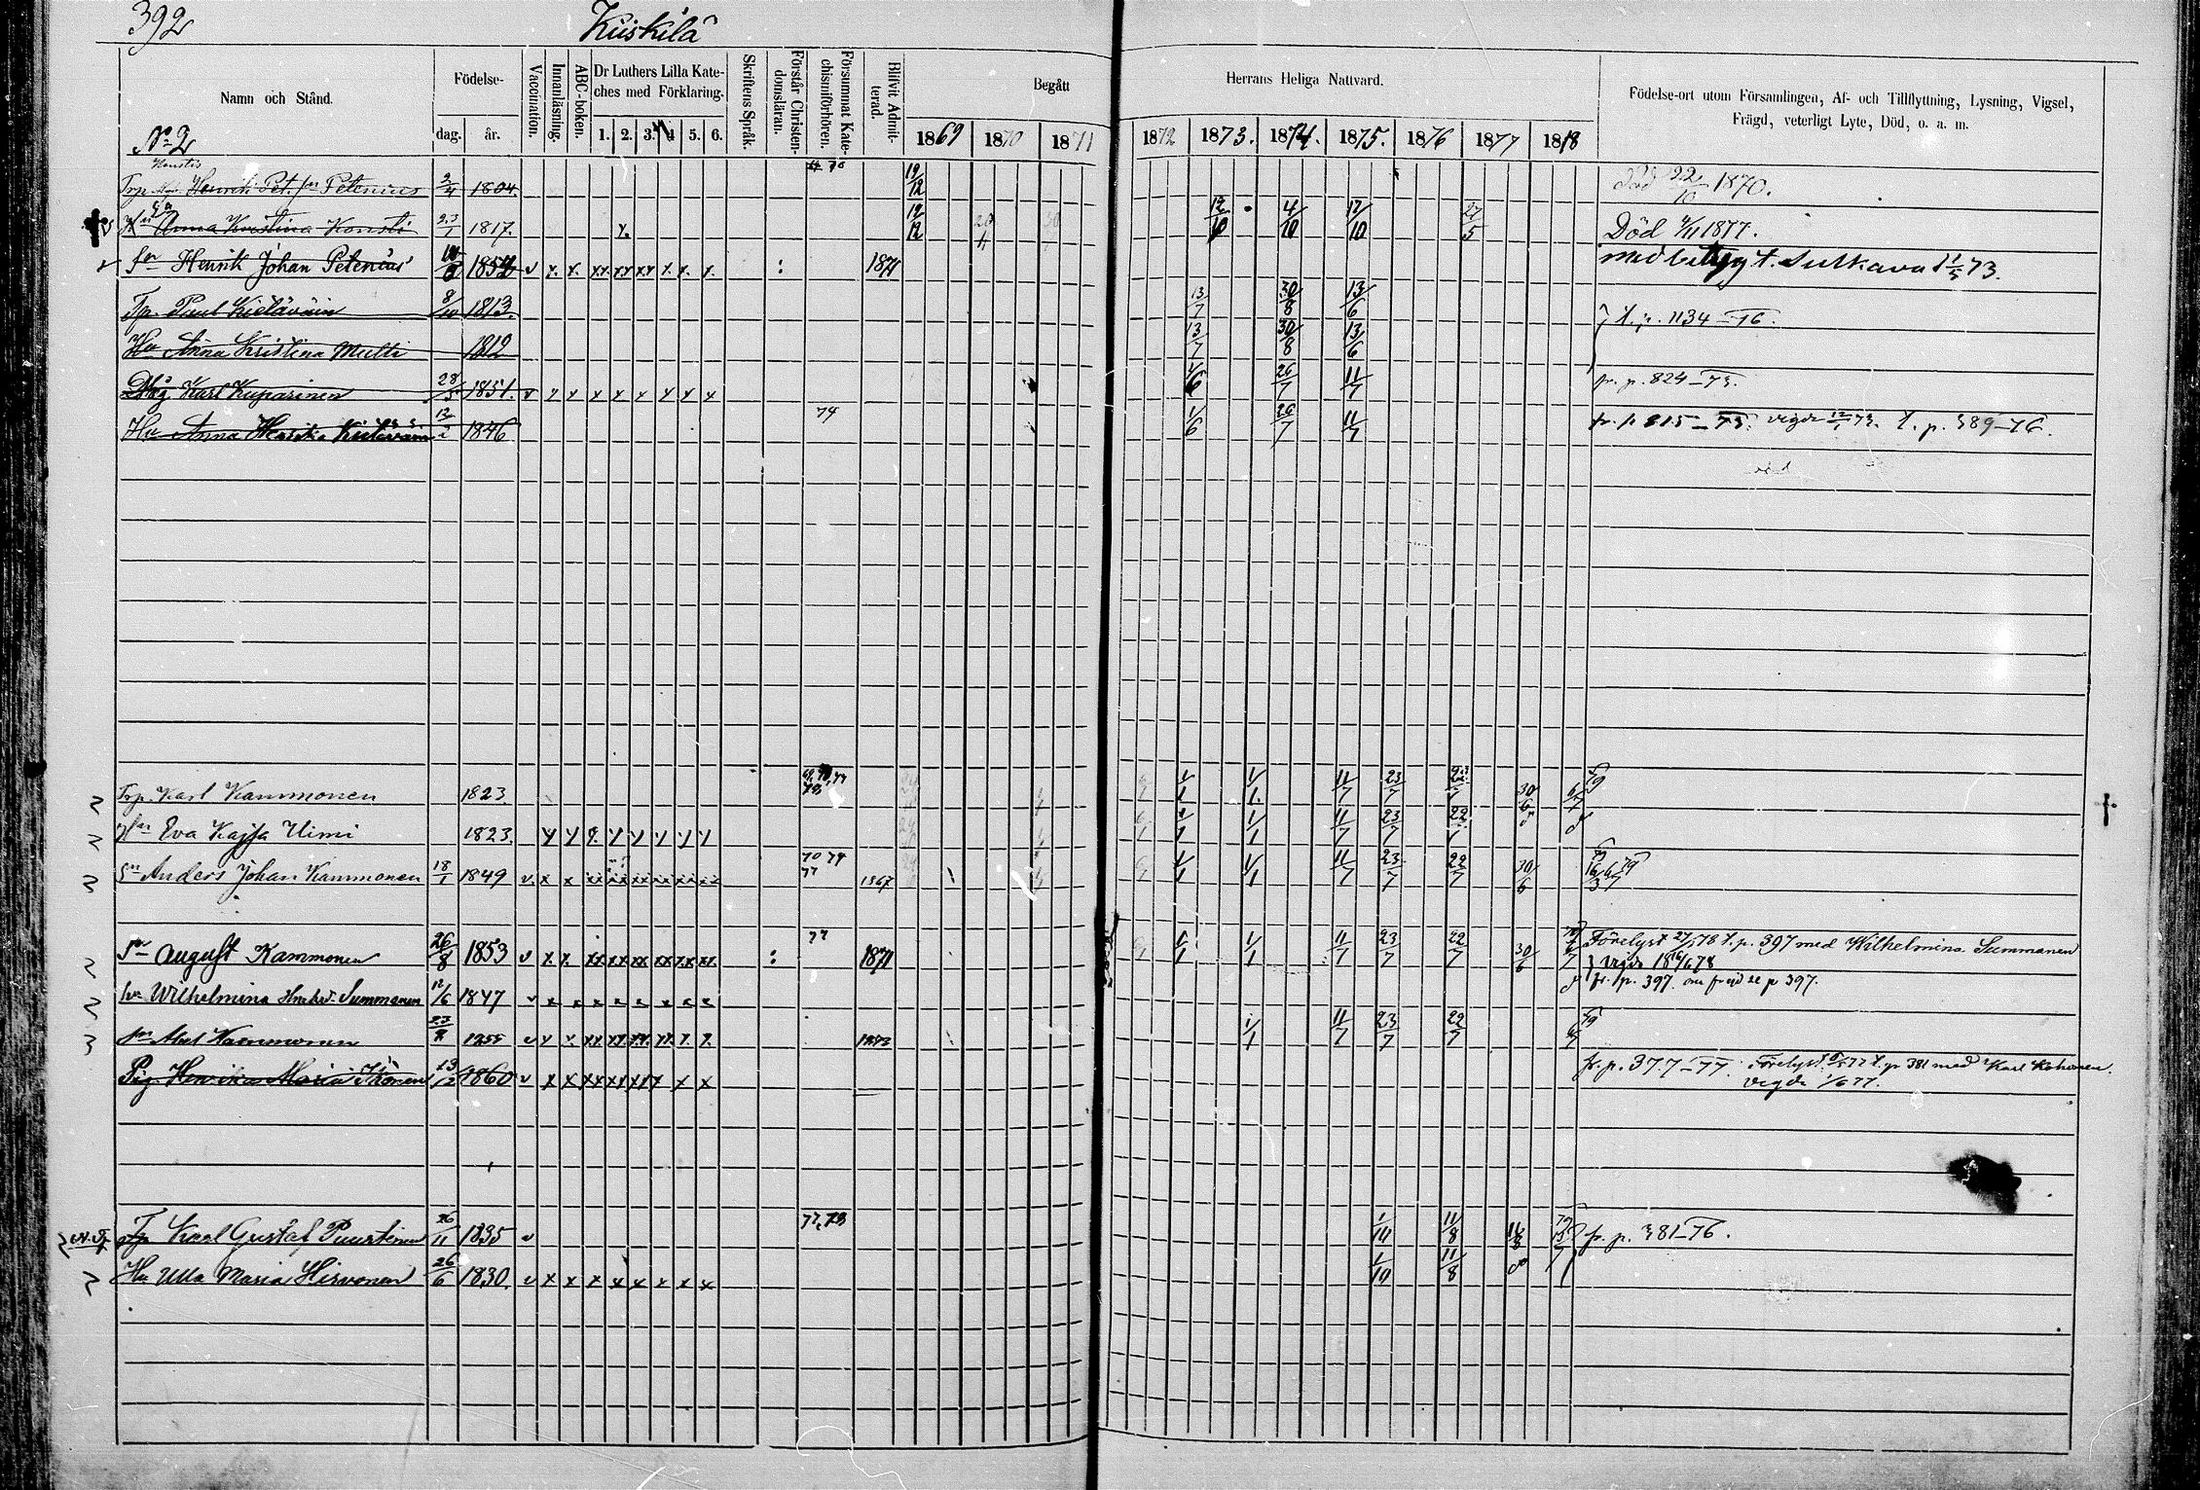 392
Kiiskilä
Namn och Stånd.
Födelse-
dag.
år.
Vaccination.
Innanläsning.
ABC-boken.
Dr Luthers Lilla Kate-
ches med Förklaring.
1. 2. 3. 4 5. 6.
Skriftens Språk.
Förstår Christen-
domsläran.
Försummat Kate-
chismiförhören.
Blifvit Admit-
terad.
Begått
Herrans Heliga Nattvard.
1869 1870 1871 1872 1873. 1874. 1875. 1876 1877 1878
Födelse-ort utom Församlingen, Af- och Tillflyttning, Lysning, Vigsel,
Frägd, veterligt Lyte, Död, o. a. m.
No 2
Henrik Pet. sn Petenius 2/4 1804. 19/12 Död 22/10 1870.
Anna Kristina Konsti 23/1 1817. x. 19/12 12/10 4/10 17/10 27/5 Död 1877.
sn Henrik Johan Petenius 1852 v x. x. xx xx xx x. x. x. : 1871 Sulkava 73.
Tp. Paul Kietäväin 8/10 1813. 13/7 30/8 13/6 t. p. 1134–76.
Hu Anna Kristina Multi 1812 13/7 30/8 13/6
Måg Karl Kuparinen 28/5 1851. v x x x x x x x x 1/6 26/7 11/7 fr. p. 824–73.
Hu Anna Henrika Kietäväin 12/2 1846 74 1/6 26/7 11/7 fr. p. 815–73. vigde 73. t. p. 389–76.
Trp. Karl Kammonen 1823. 1/1 1/1. 11/7 23/7 22/7 30/6
Hu Eva Kajsa Uimi 1823. 1/1 1/1 11/7 23/7 22/7
Sn Anders Johan Kammonen 18/1 1849 v. x x 70 74 77 1867 1/1 1/1 11/7 23/7 22/7 30/6
Sn August Kammonen 26/8 1853 v x x. xx xx xx xx xx xx : 77 1871 1/1 1/1 11/7 23/7 22/7 30/6 Förelyst 78 t. p. 397 med Wilhelmina Summanen
vigde 78
hu Wilhelmina Summanen 12/6 1847 v x x x x x x x x fr. p. 397. om frejd se p 397.
sn Abel Kammonen 1855 v x x. xx xx xx xx x. x. 1873 1/1 11/7 23/7 22/7
Pig. Henrika Maria Ikonen 13/12 1860 v x x xx xx xx x x fr. p. 377–77. Förelyst 77 t. p. 381 med Karl Kohonen.
vigde 77.
Tp Karl Gustaf Puustinen 26/11 1835 v 77, 78 1/10 11/8 fr. p. 381–76.
Hu Ulla Maria Hirvonen 26/6 1830. v x x x x x x x x 1/10 11/8